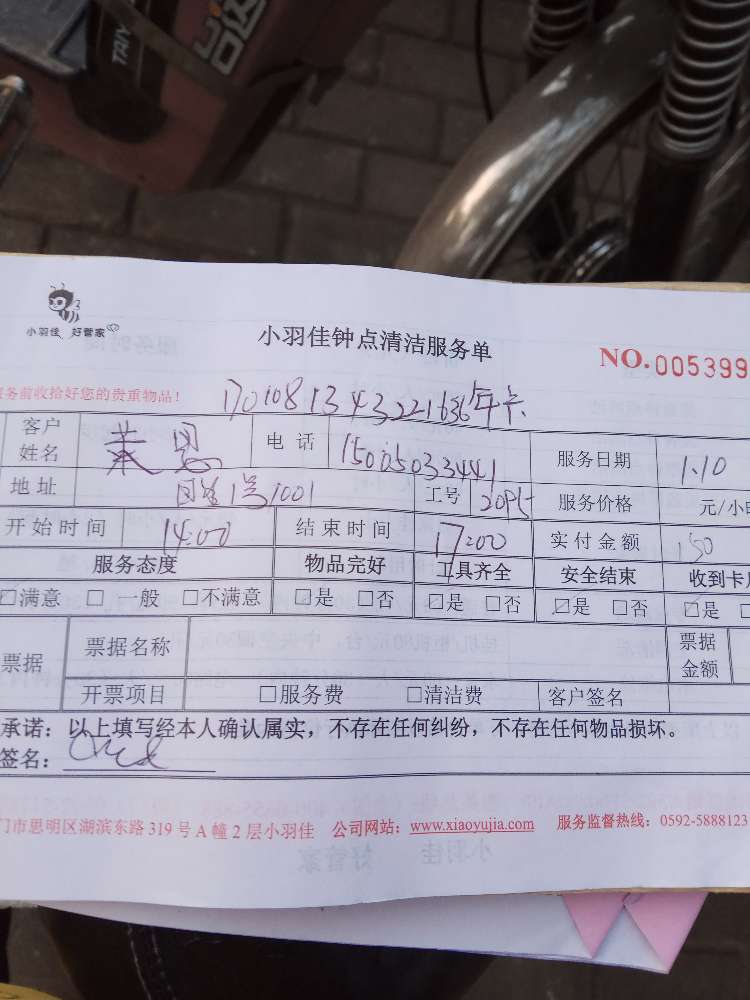 TAIY
小羽佳 好管家
小羽佳钟点清洁服务单
NO.005399
务前收拾好您的贵重物品!
年卡
客户姓名 电话 15005033441 服务日期 1.10
地址 1号1001 工号 2095 服务价格 元/小时
开始时间 14:00 结束时间 17:00 实付金额 150
服务态度 物品完好 工具齐全 安全结束 收到卡
☑满意 □ 一般 □不满意 ☑是 □否 ☑是 □否 ☑是 □否 ☑是
票据 票据名称 票据金额
开票项目 □服务费 □清洁费 客户签名
承诺：以上填写经本人确认属实，不存在任何纠纷，不存在任何物品损坏。
签名：
门市思明区湖滨东路 319 号 A 幢 2 层小羽佳 公司网站：www.xiaoyujia.com 服务监督热线：0592-5888123